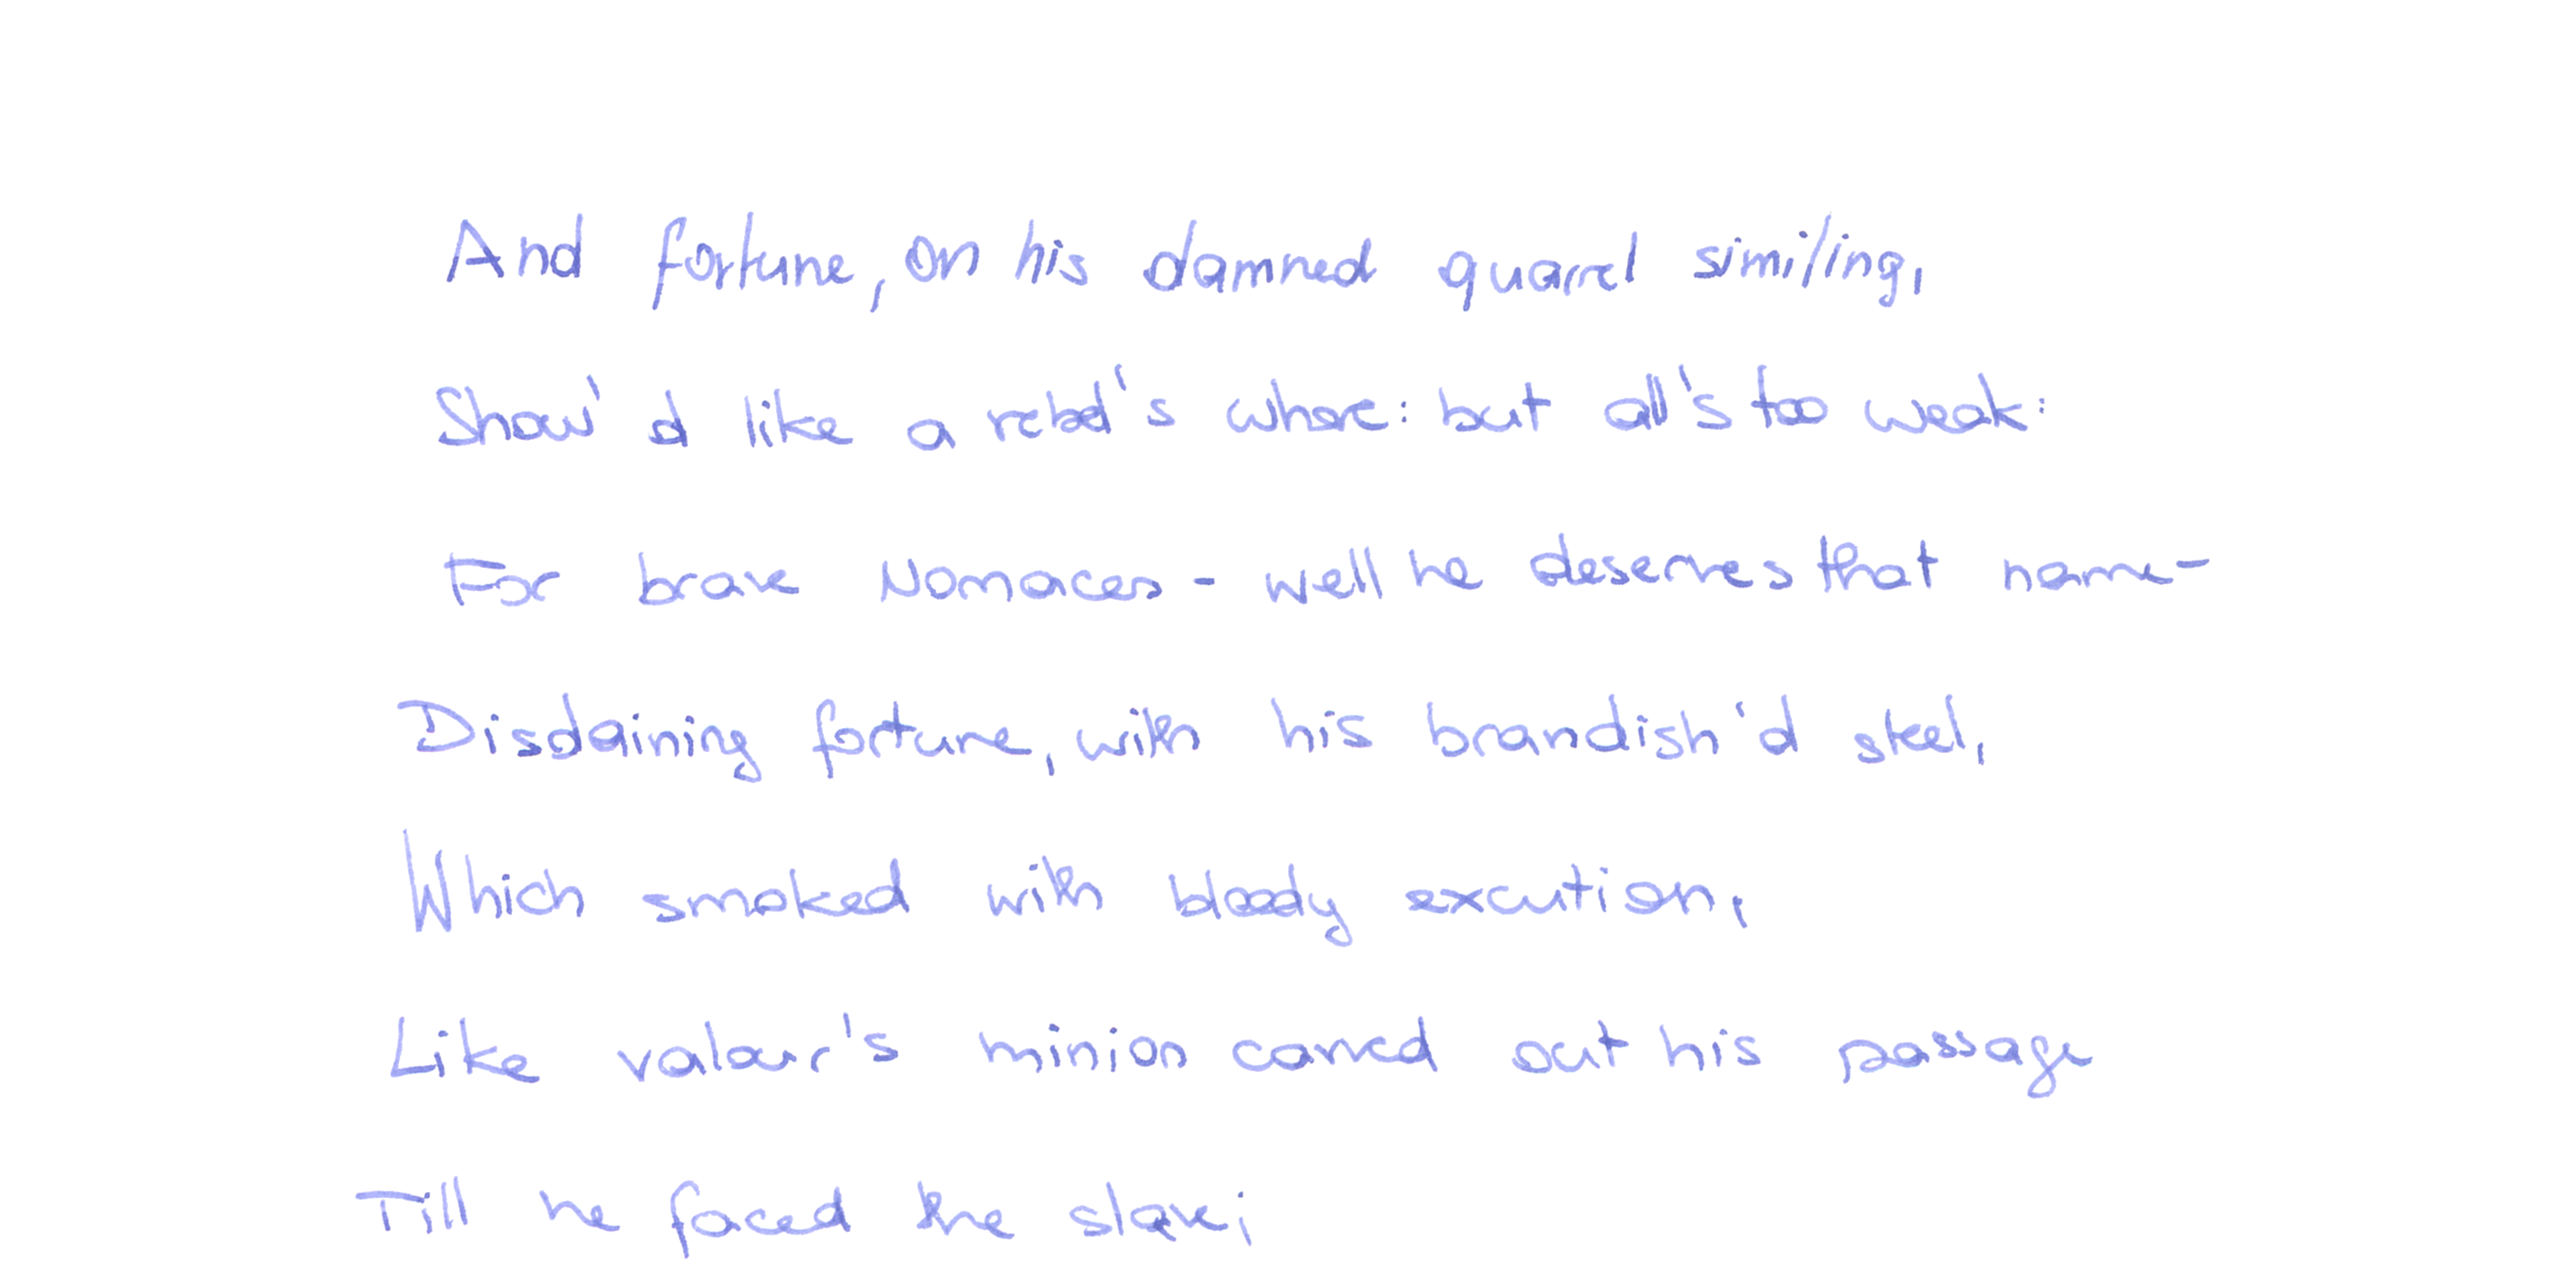 And fortune, on his damned quarrel similing,
Show'd like a rebel's whore: but all's too weak:
For brave Nomaces - well he deserves that name-
Disdaining fortune, with his brandish'd steel,
Which smoked with bloody excution,
Like valour's minion carved out his passage
Till he faced the slave;